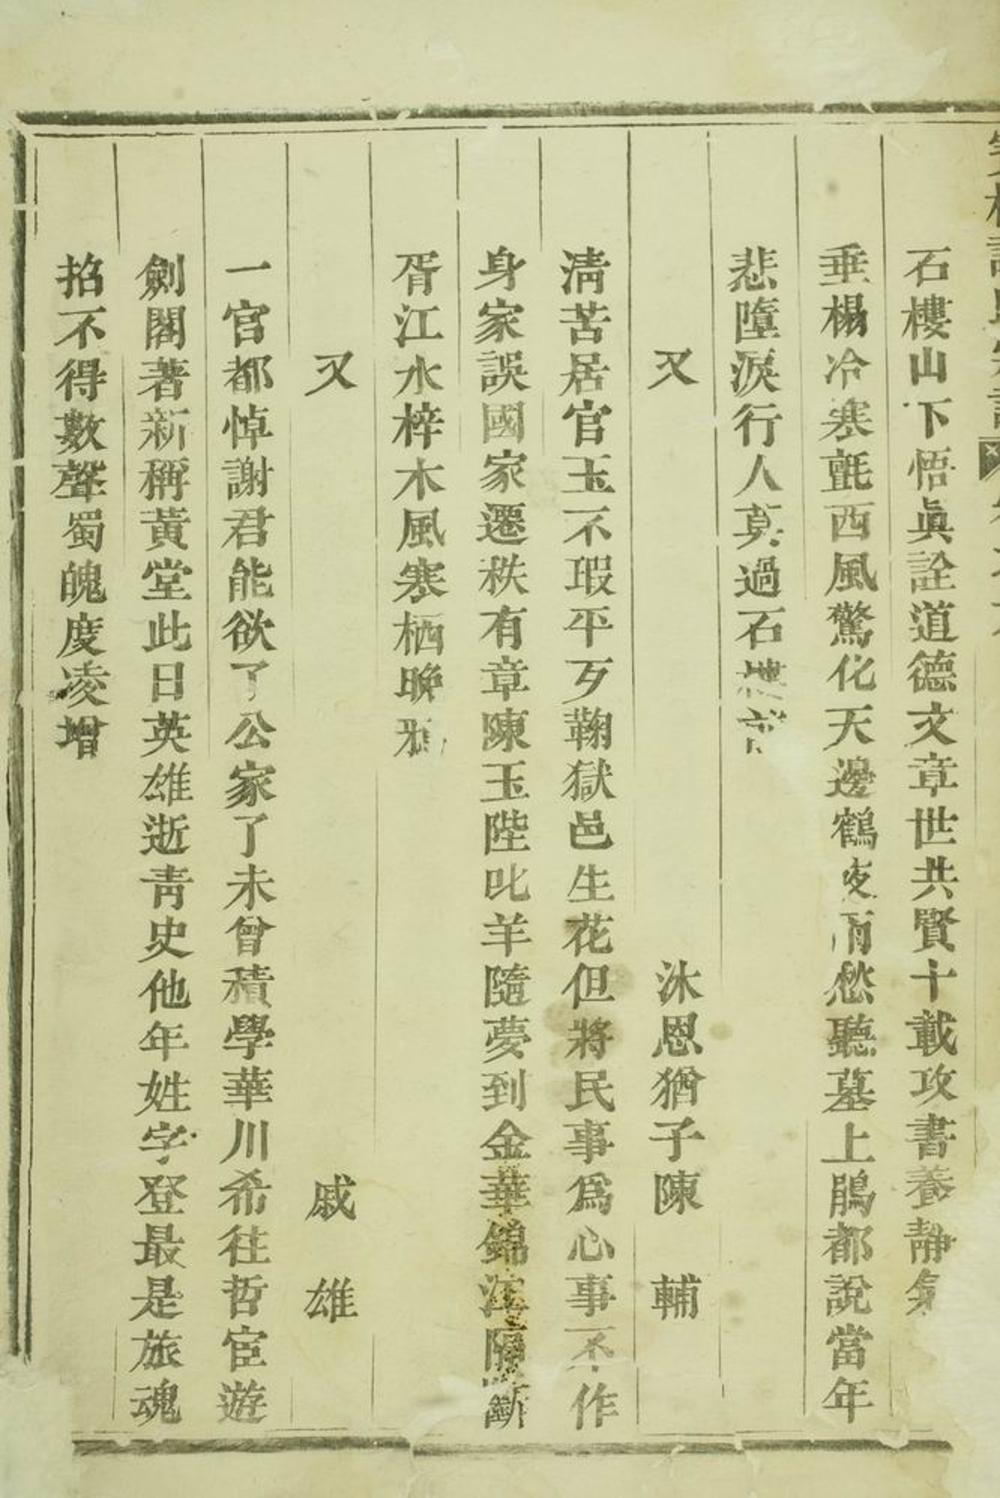 石樓山下悟眞詮道德文章世共賢十載攻書養靜氣
垂楊冷寒氈西風驚化天邊鶴夜雨愁聽墓上鵑都說當年
悲墮淚行人莫過石樓前
又　沐恩猶子陳　輔
淸苦居官玉不瑕平歹鞠獄邑生花但將民事爲心事不作
身家誤國家遷秩有章陳玉陛叱羊隨夢到金華錦江隔斷
胥江水梓木風寒栖晚鴉
又　戚　雄
一官都悼謝君能欲了公家了未曾積學華川希往哲宦遊
劍閣著新稱黃堂此日英雄逝靑史他年姓字登最是旅魂
招不得數聲蜀魄度凌增